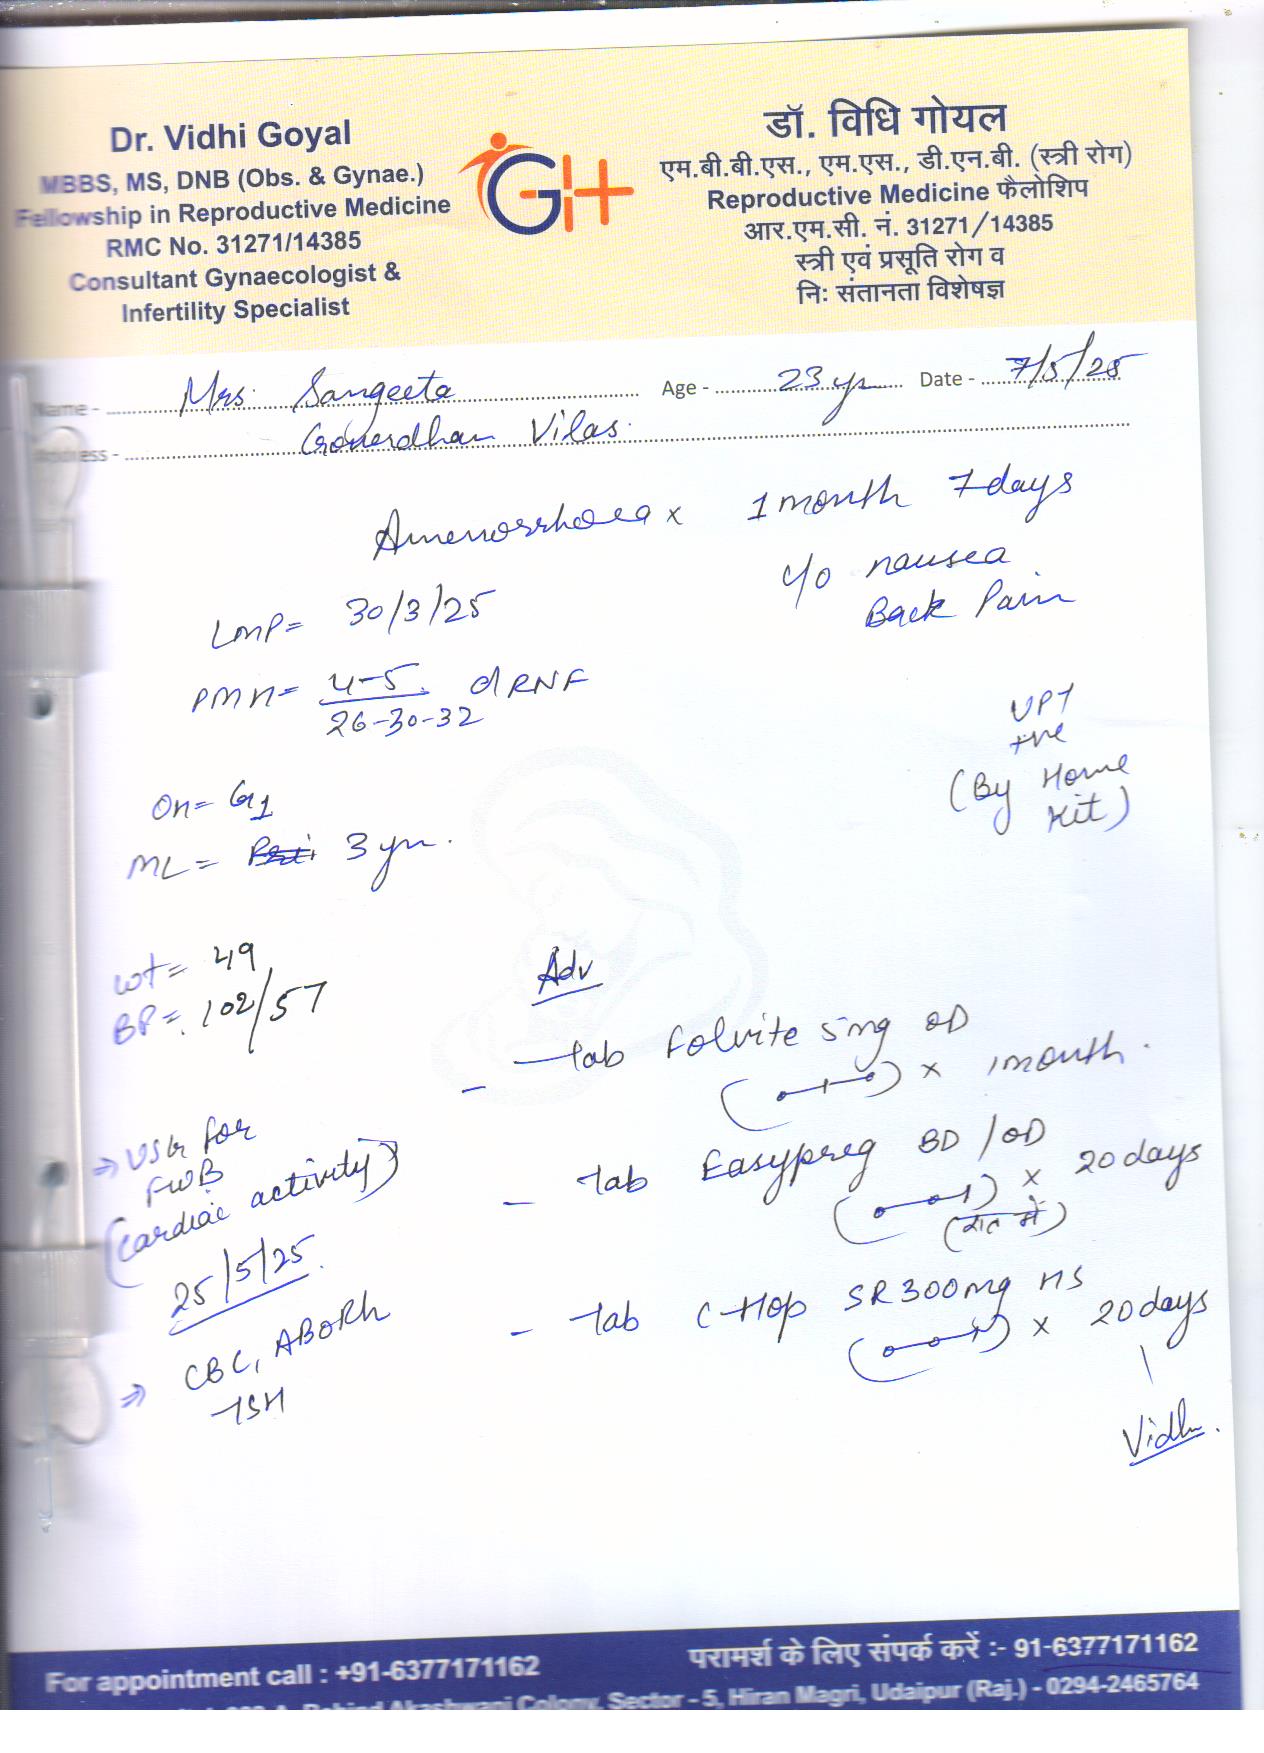 Dr. Vidhi Goyal
MBBS, MS, DNB (Obs. & Gynae.)
Fellowship in Reproductive Medicine
RMC No. 31271/14385
Consultant Gynaecologist &
Infertility Specialist
GH
डॉ. विधि गोयल
एम.बी.बी.एस., एम.एस., डी.एन.बी. (स्त्री रोग)
Reproductive Medicine फैलोशिप
आर.एम.सी. नं. 31271/14385
स्त्री एवं प्रसूति रोग व
निः संतानता विशेषज्ञ
Name - Mrs. Sangeeta Age - 23 yr Date - 7/5/25
Address - Goverdhan Vilas.
Amenorrhoea x 1 month 7 days
LMP = 30/3/25 c/o nausea
Back Pain
PMH = 4-5 / 26-30-32 d RNF
UPT
+ve
(By Home
Kit)
OH = G1
ML = 3 yr.
wt = 49
BP = 102/57
Adv
- Tab Folvite 5mg OD
x 1 month.
⇒ USG for
FWB
(Cardiac activity)
25/5/25.
- Tab Easypreg BD/OD
x 20 days
(रात में)
- Tab C-Hop SR 300mg HS
x 20 days
⇒ CBC, ABORh
TSH
Vidhi.
For appointment call : +91-6377171162
परामर्श के लिए संपर्क करें :- 91-6377171162
Behind Akashwani Colony, Sector - 5, Hiran Magri, Udaipur (Raj.) - 0294-2465764